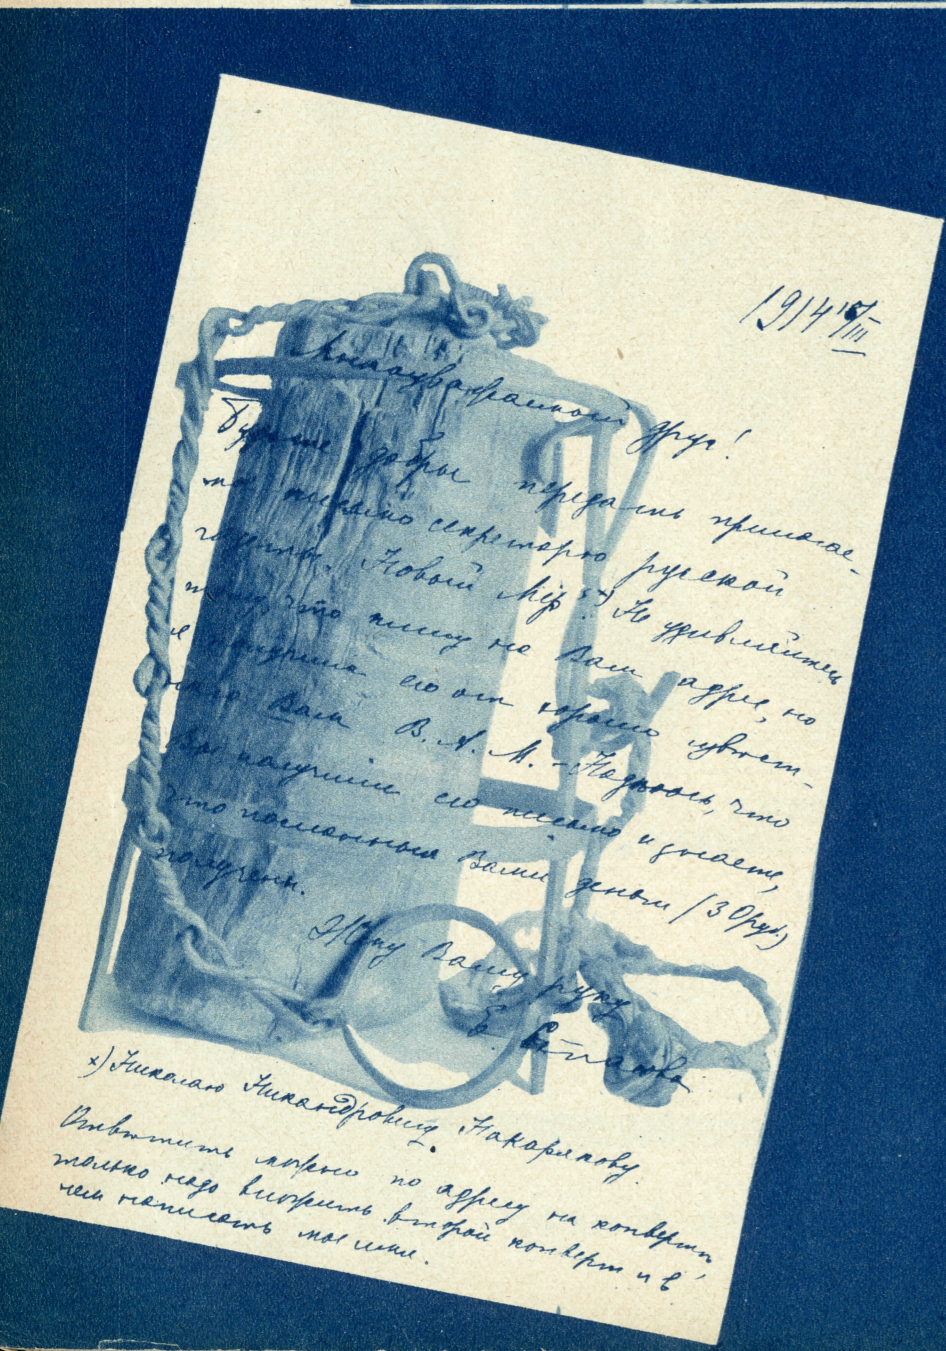 1914 18/III
Многоуважаемый друг!
Будьте добры передать прилагае-
мое письмо секретарю русской
газеты „Новый Мір“.х) Не удивляйтесь
тому, что пишу на Ваш адрес, но
я получила его от хорошо извест-
наго Вам В. А. М. – Надеюсь, что
Вы получили его письмо и знаете,
что посланныя Вами деньги (30 руб.)
получены.
Жму Вашу руку
Е.
х) Николаю Никандровичу Накорякову.
Ответить можно по адресу на конверте,
только надо вложить второй конверт и в
нем написать мое имя.